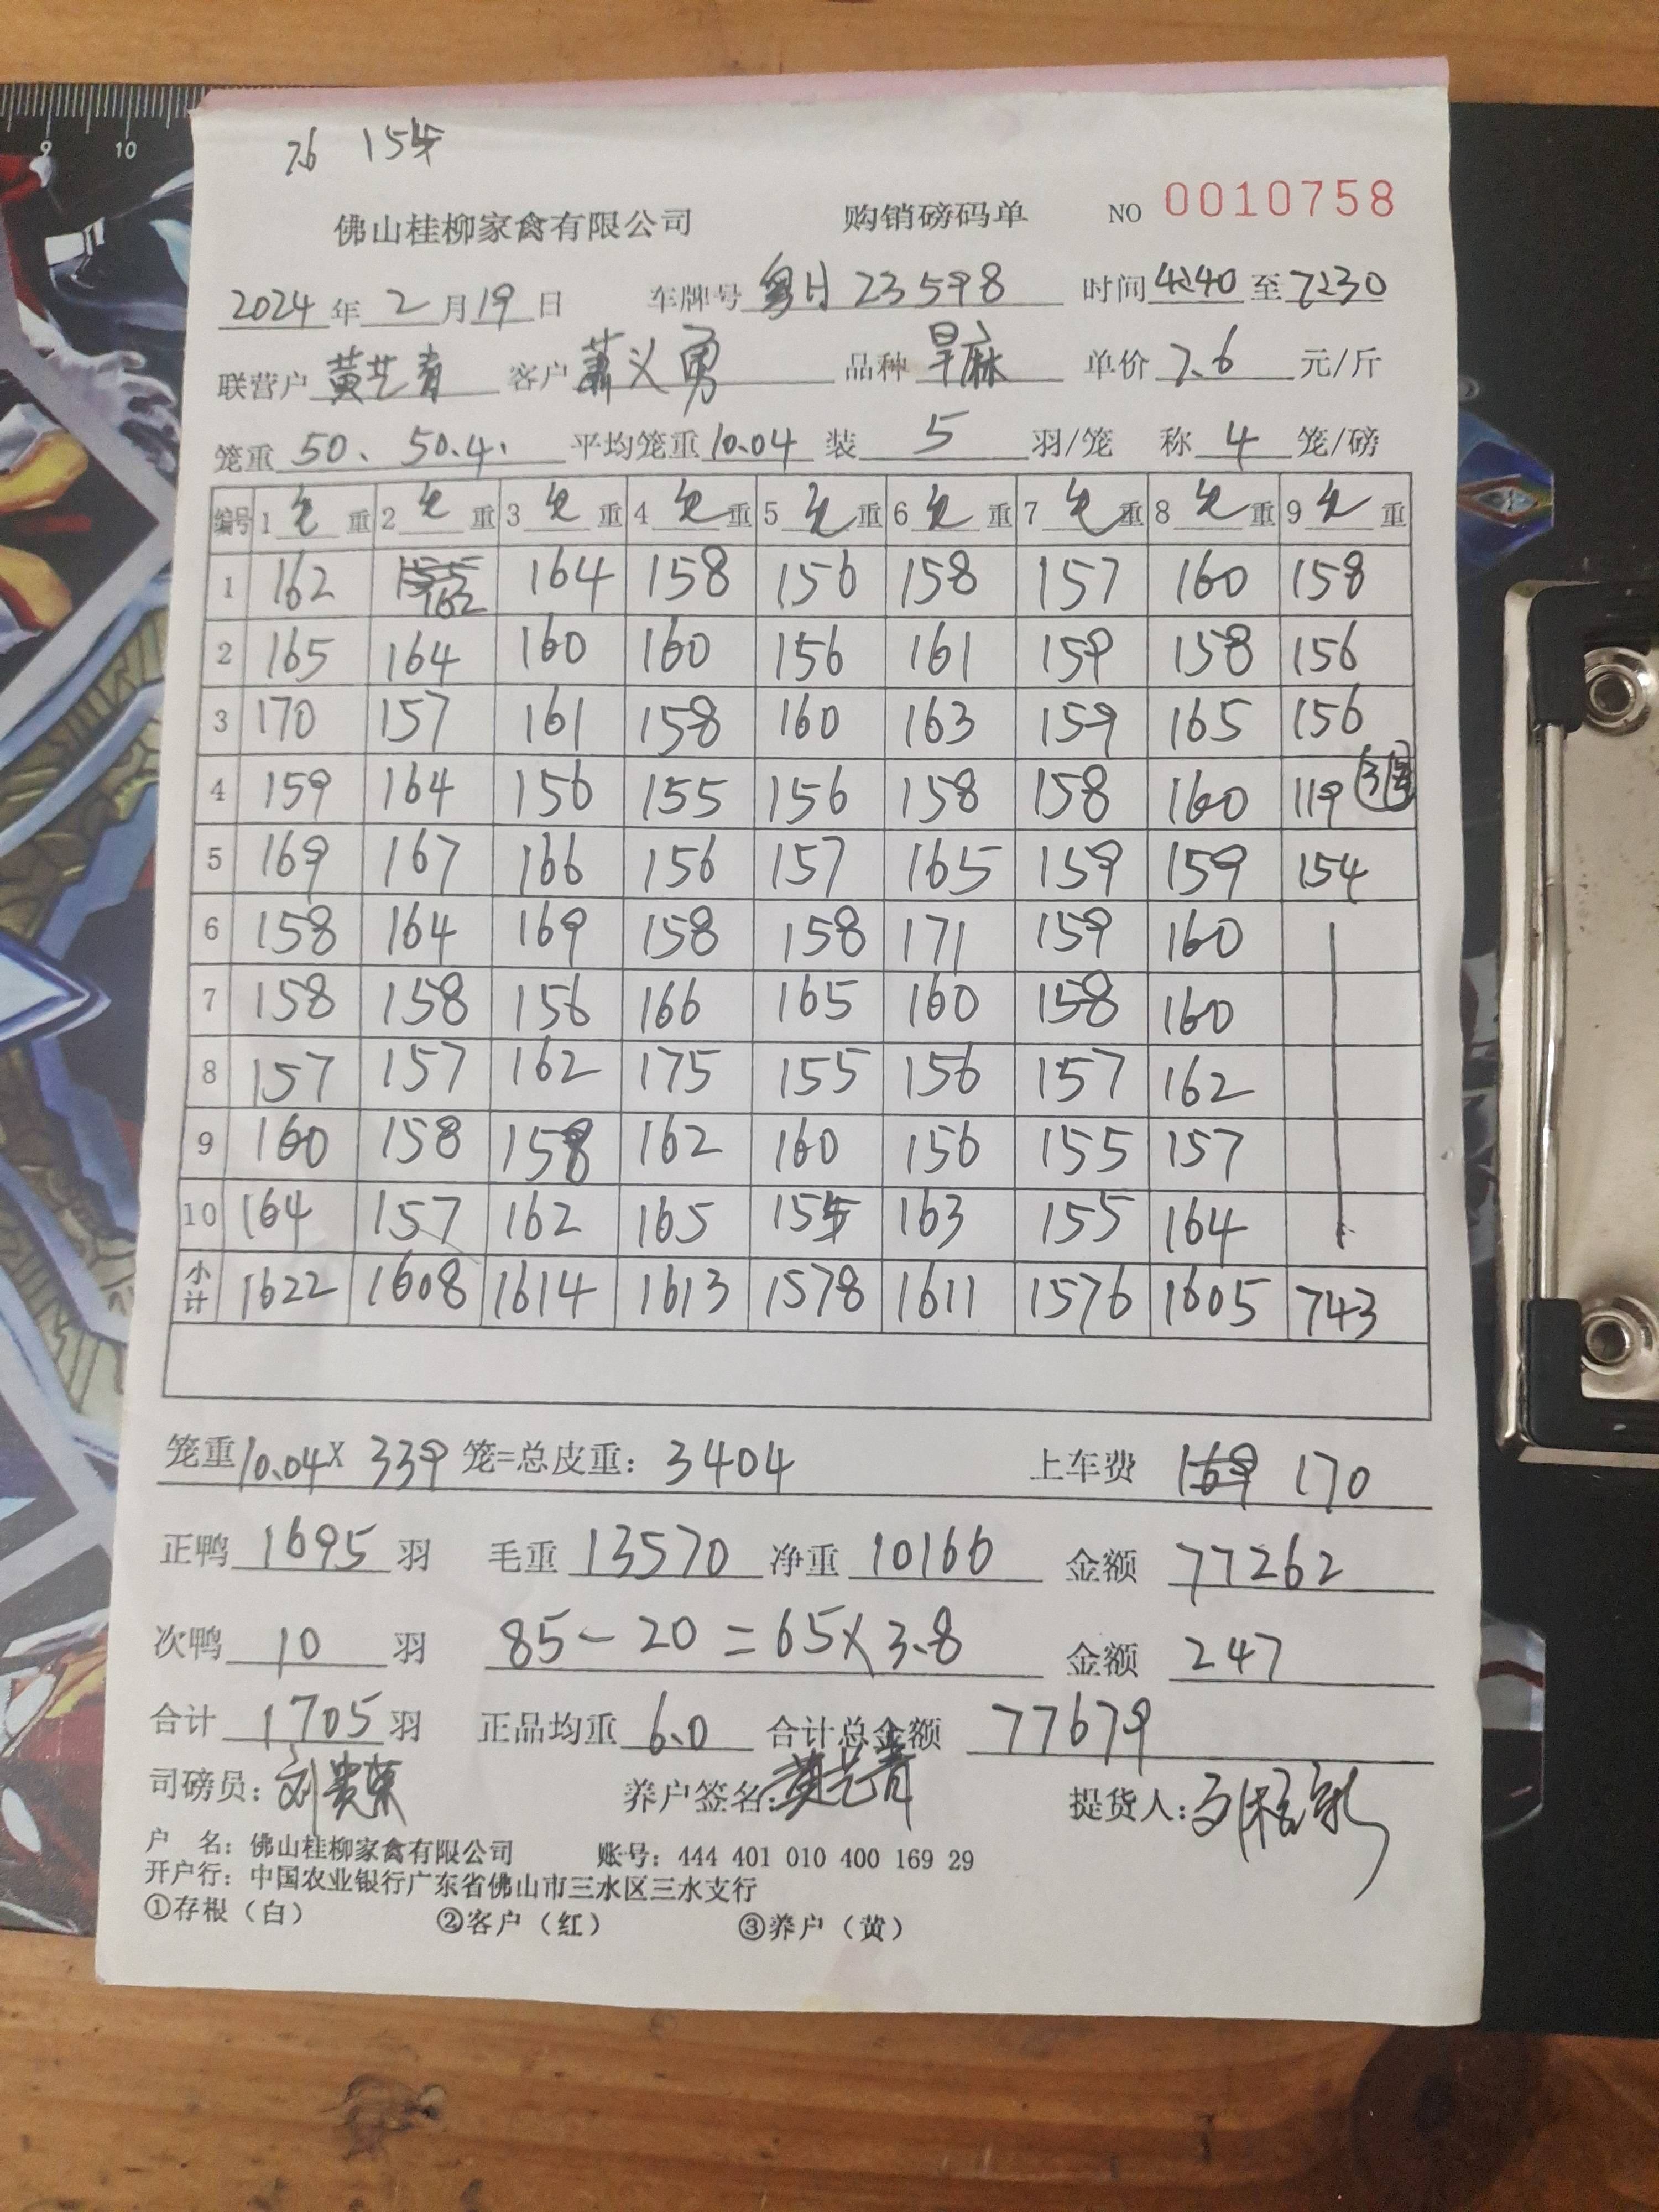 9 10
7.6 154
佛山桂柳家禽有限公司 购销磅码单 NO 0010758
2024 年 2 月 19 日 车牌号 粤H 23598 时间 4:40 至 7:30
联营户 黄艺青 客户 萧义勇 品种 旱麻 单价 7.6 元/斤
笼重 50、50.4. 平均笼重 10.04 装 5 羽/笼 称 4 笼/磅
编号 1 毛 重 2 毛 重 3 毛 重 4 毛 重 5 毛 重 6 毛 重 7 毛 重 8 毛 重 9 毛 重
1 162 162 164 158 156 158 157 160 158
2 165 164 160 160 156 161 159 158 156
3 170 157 161 158 160 163 159 165 156
4 159 164 156 155 156 158 158 160 119
5 169 167 166 156 157 165 159 159 154
6 158 164 169 158 158 171 159 160
7 158 158 156 166 165 160 158 160
8 157 157 162 175 155 156 157 162
9 160 158 158 162 160 156 155 157
10 164 157 162 165 155 163 155 164
小计 1622 1608 1614 1613 1578 1611 1576 1605 743
笼重 10.04 X 339 笼=总皮重: 3404 上车费 169 170
正鸭 1695 羽 毛重 13570 净重 10166 金额 77262
次鸭 10 羽 85-20=65×3.8 金额 247
合计 1705 羽 正品均重 6.0 合计总金额 77679
司磅员: 刘贵荣 养户签名: 黄艺青 提货人:
户 名: 佛山桂柳家禽有限公司 账号: 444 401 010 400 169 29
开户行: 中国农业银行广东省佛山市三水区三水支行
①存根(白) ②客户(红) ③养户(黄)